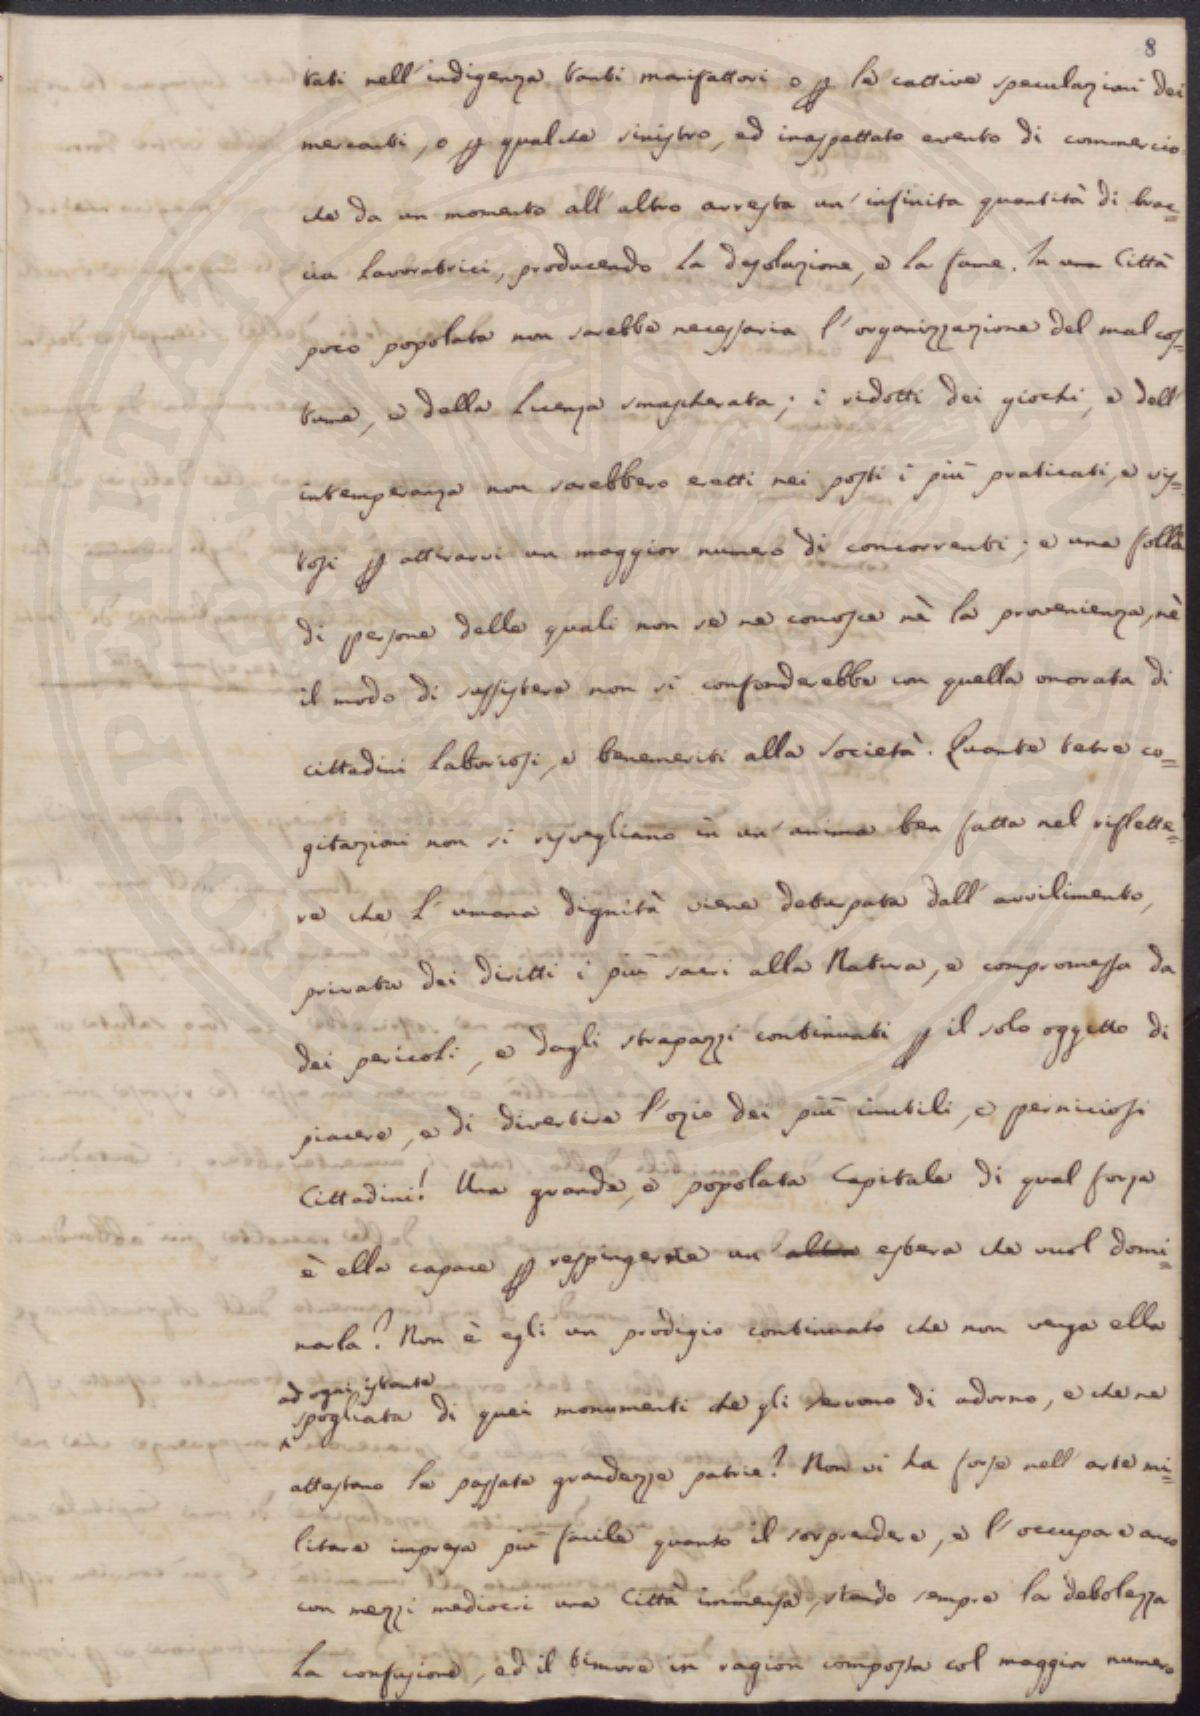 8
tati nell'indigenza tanti manifattori o ꝑ le cattive speculazioni dei
mercanti, o ꝑ qualche sinistro, ed inaspettato evento di commercio
che da un momento all'altro arresta un'infinita quantità di brac=
cia lavoratrici, producendo la desolazione, e la fame. In una Città
poco popolata non sarebbe necessaria l'organizzazione del mal cos=
tume, e della licenza smascherata; i ridotti dei giochi, e dell'
intemperanza non sarebbero eretti nei posti i più praticati, e vis=
tosi ꝑ attirarvi un maggior numero di concorrenti; e una folla
di persone delle quali non se ne conosce nè la provenienza, nè
il modo di sussistere non si confonderebbe con quella onorata di
cittadini laboriosi, e benemeriti alla società. Quante tetre co=
gitazioni non si risvegliano in un'anima ben fatta nel riflette=
re che l'umana dignità viene deturpata dall'avvilimento,
privata dei diritti i più sacri alla Natura, e compromessa da
dei pericoli, e dagli strapazzi continuati ꝑ il solo oggetto di
piacere, e di divertire l'ozio dei più inutili, e perniciosi
Cittadini! Una grande, e popolata Capitale di qual forza
è ella capace ꝑ respingerne un'altra estera che vuol domi=
narla? Non è egli un prodigio continuato che non venga ella
ad ogni istante
spogliata di quei monumenti che gli servono di adorno, e che ne
attestano le passate grandezze patrie? Non vi ha forse nell'arte mi=
litare impresa più facile quanto il sorprendere, e l'occupare anco
con mezzi mediocri una Città immensa, stando sempre la debolezza
la confusione, ed il timore in ragion composta col maggior numero